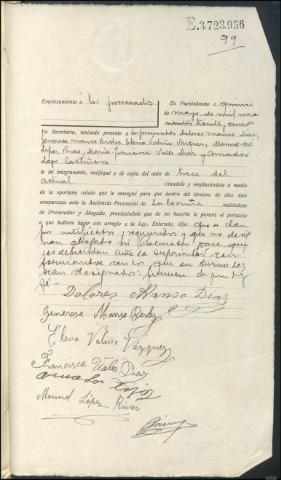 E.3.723,956
99
Emplazamiento á los procesados
En Puentedeume a quince
de mayo de mil nove
cientos treinta, cinco
Yo Secretario, teniendo presente a los procesados Dolores Manso Diaz,
Generosa Manso Pardey, Elena Valiño Vázquez, Manuel José
López Rivas, María Francisca Vales Diaz y Amador
le leí íntegramente, notifiqué y di copia del auto de trece del
actual citándole y emplazándole a medio
de la oportuna cédula que le entregué para que dentro del término de diez días
comparezca ante la Audiencia Provincial de La Coruña valiéndose
de Procurador y Abogado, previniéndole que de no hacerlo le parará el perjuicio
a que hubiere lugar con arreglo a la Ley. Enterado, dijo: que se dan
por notificados, requeridos y que no desig
nan abogado ni Procurador para que
les defiendan ante la superioridad con
formándose con los que en turno les
sean designados: firman de que doy
fé
Dolores Manso Diaz
Generosa Manso Pardey
Elena Valiño Vázquez
Francisca Vales Diaz
Manuel López Rivas